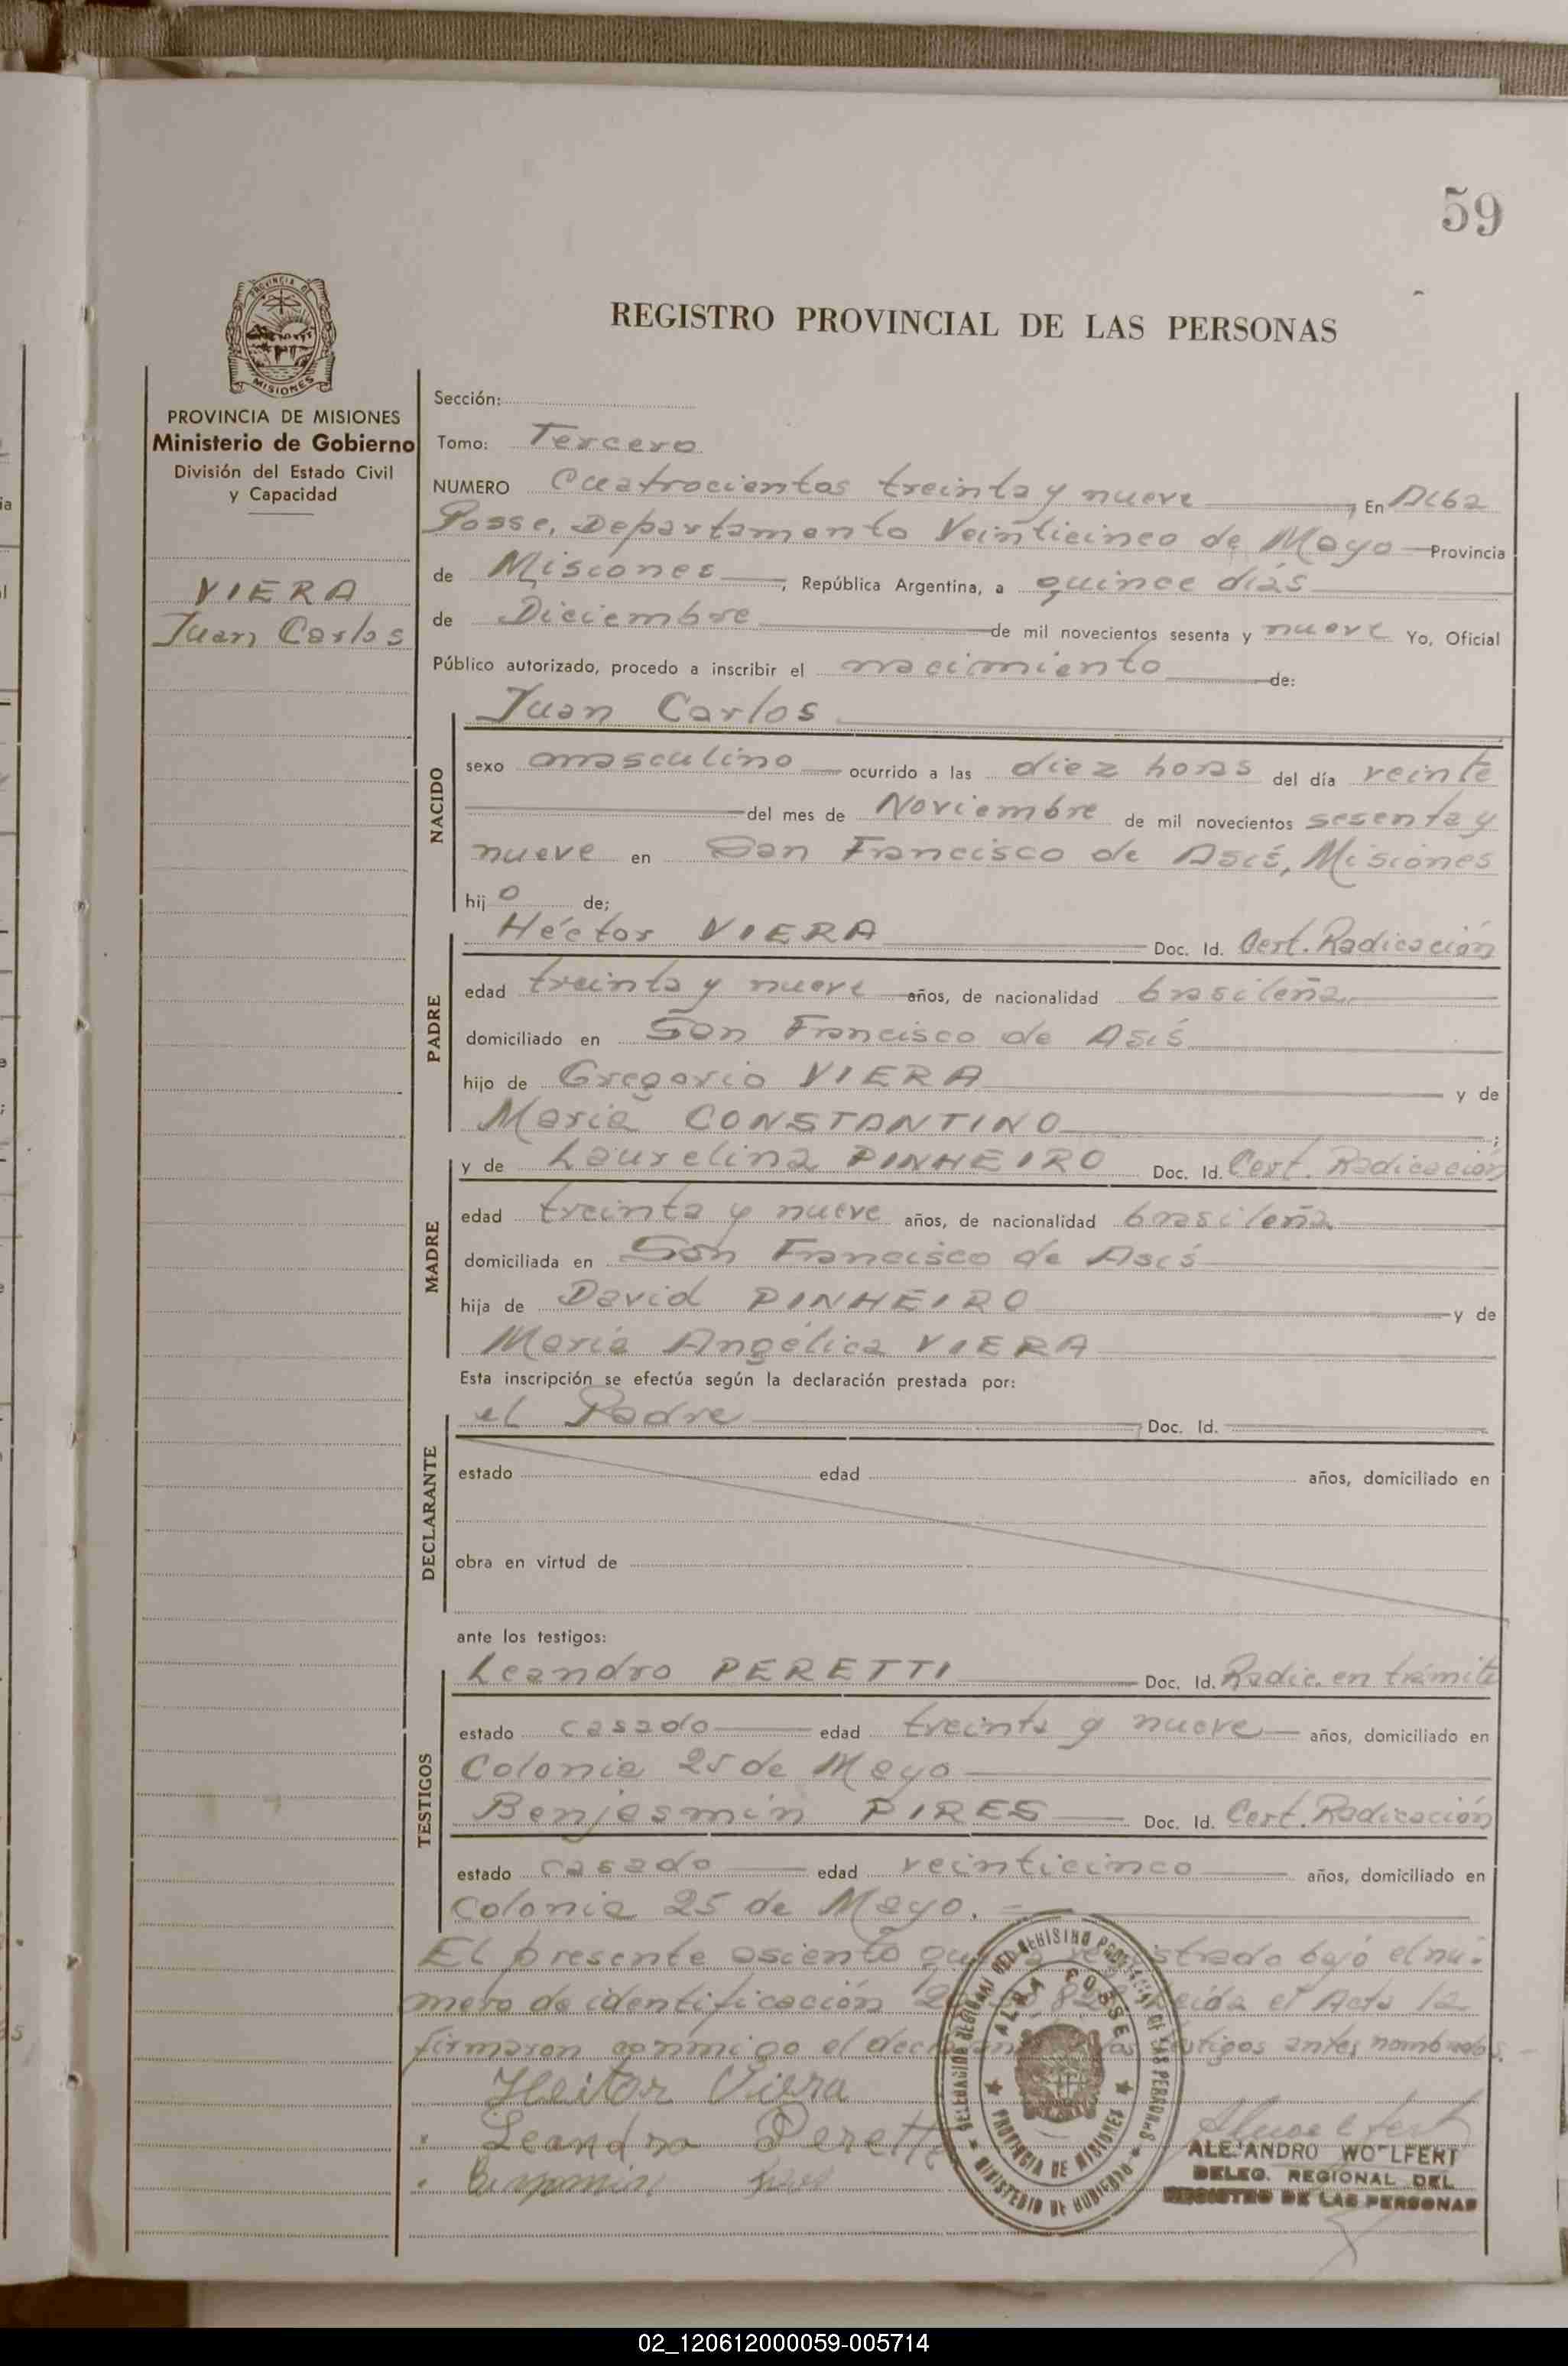 59
PROVINCIA DE
MISIONES
PROVINCIA DE MISIONES
Ministerio de Gobierno
División del Estado Civil
y Capacidad
VIERA
Juan Carlos
REGISTRO PROVINCIAL DE LAS PERSONAS
Sección:
Tomo: Tercero
NUMERO Cuatrocientos treinta y nueve, En Alba
Posse, Departamento Veinticinco de Mayo Provincia
de Misiones, República Argentina, a quince días
de Diciembre de mil novecientos sesenta y nueve Yo, Oficial
Público autorizado, procedo a inscribir el nacimiento de:
NACIDO
Juan Carlos
sexo masculino ocurrido a las diez horas del día veinte
del mes de Noviembre de mil novecientos sesenta y
nueve en San Francisco de Asís, Misiones
hijo de;
PADRE
Héctor VIERA Doc. Id. Cert. Radicación
edad treinta y nueve años, de nacionalidad brasileña
domiciliado en San Francisco de Asís
hijo de Gregorio VIERA y de
María CONSTANTINO;
MADRE
y de Laurelina PINHEIRO Doc. Id. Cert. Radicación
edad treinta y nueve años, de nacionalidad brasileña
domiciliada en San Francisco de Asís
hija de David PINHEIRO y de
María Angélica VIERA
Esta inscripción se efectúa según la declaración prestada por:
DECLARANTE
el Padre, Doc. Id.
estado edad años, domiciliado en
obra en virtud de
ante los testigos:
TESTIGOS
Leandro PERETTI Doc. Id. Radic. en trámite
estado casado edad treinta y nueve años, domiciliado en
Colonia 25 de Mayo
Benjasmín PIRES Doc. Id. Cert. Radicación
estado casado edad veinticinco años, domiciliado en
Colonia 25 de Mayo.
El presente asiento registrado bajo el nú-
mero de identificación leída el Acta la
firmaron conmigo el testigos antes nombrados.
Heitor Viera
Leandro Peretti
DELEGACION REGIONAL DEL REGISTRO PROVINCIAL DE LAS PERSONAS
MINISTERIO DE GOBIERNO
ALBA POSSE
PROVINCIA DE MISIONES
ALEJANDRO WOLFERT
DELEG. REGIONAL DEL
REGISTRO DE LAS PERSONAS
02_120612000059-005714